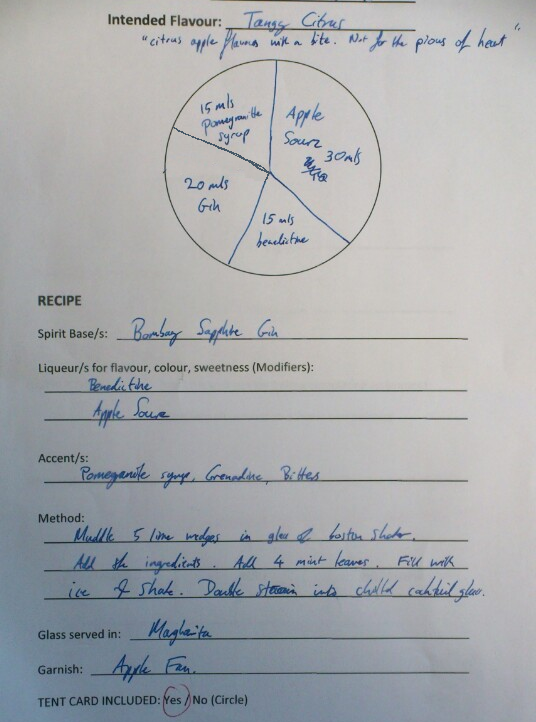 Intended Flavour: Tangy Citrus
"citrus apple flavours with a bite. Not for the pious of heart"
15 mls
Pomegranitte
syrup
Apple
Sourz
30 mls
20 mls
Gin
15 mls
benedictine
RECIPE
Spirit Base/s: Bombay Sapphire Gin
Liqueur/s for flavour, colour, sweetness (Modifiers):
Benedictine
Apple Sourz
Accent/s:
Pomegranite syrup, Grenadine, Bitters
Method:
Muddle 5 lime wedges in glass of boston shaker.
Add the ingredients. Add 4 mint leaves. Fill with
ice & shake. Double strain into chilled cocktail glass.
Glass served in: Magharita
Garnish: Apple Fan.
TENT CARD INCLUDED: Yes / No (Circle)